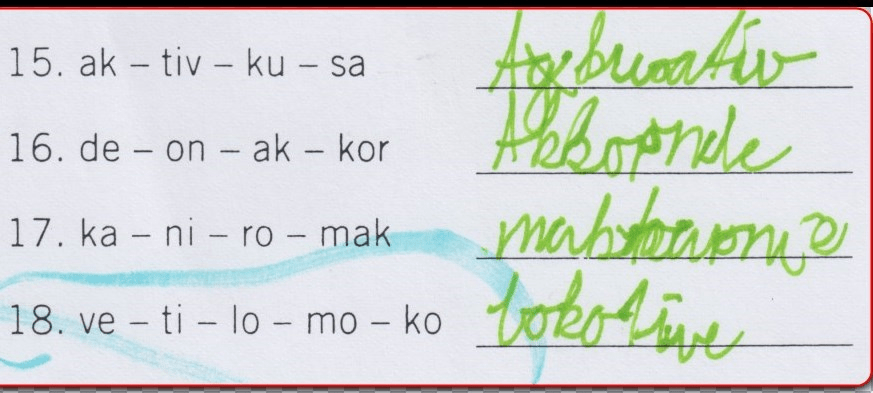 15. ak – tiv – ku – sa
16. de – on – ak – kor Akkornde
17. ka – ni – ro – mak
18. ve – ti – lo – mo – ko lokotive